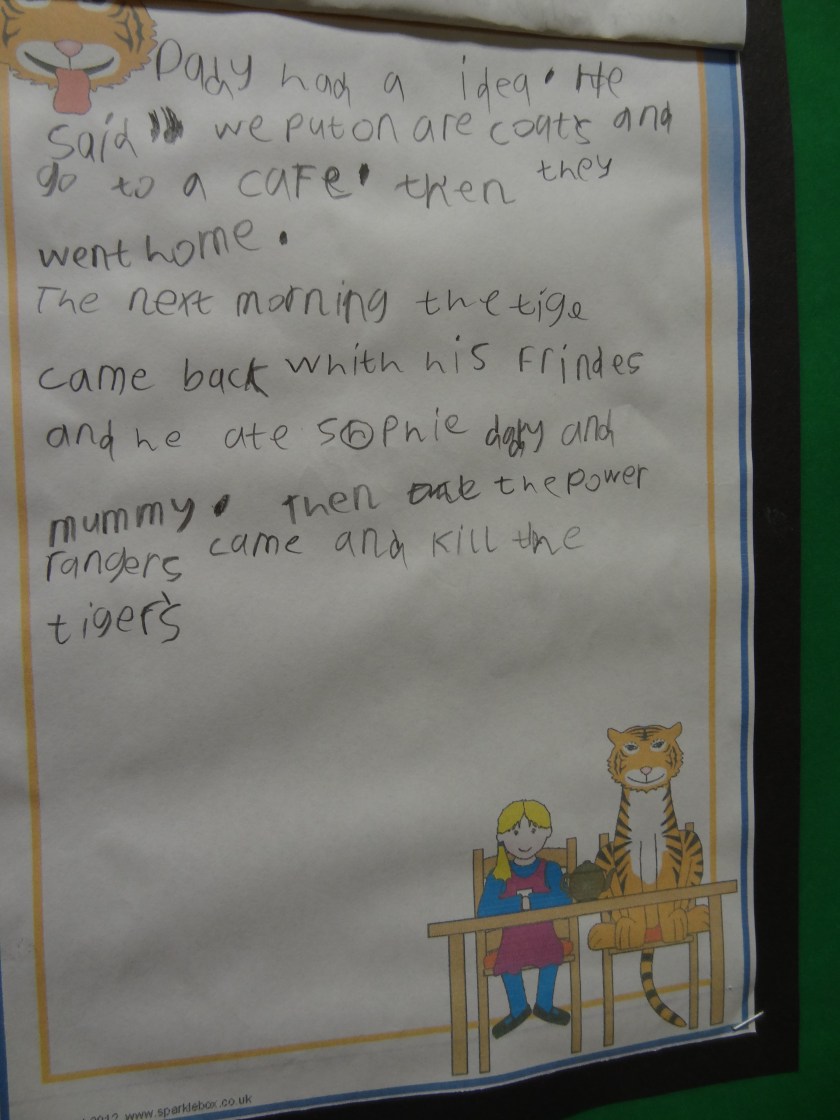 Dady had a idea. He
said " we put on are coats and
go to a cafe. then they
went home.
The next morning the tige
came back whith his Frindes
and he ate sophie dady and
mummy. Then the power
rangers came and kill the
tiger's
2012 www.sparklebox.co.uk